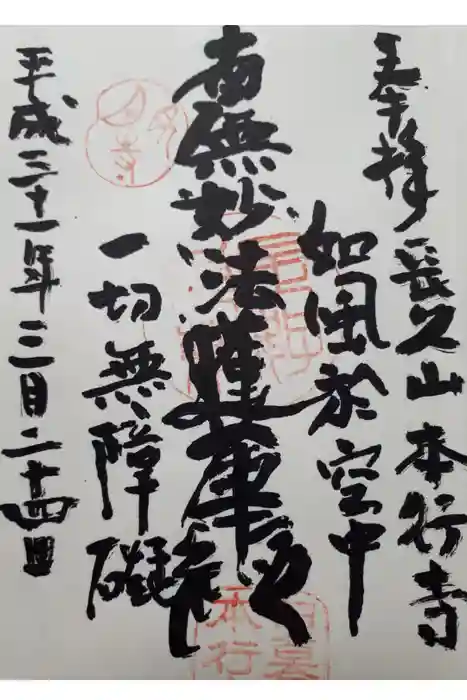 奉拝 長久山本行寺
如風於空中
南無妙法蓮華経
一切無障礙
平成三十一年三月二十四日
月見寺
日暮
本行